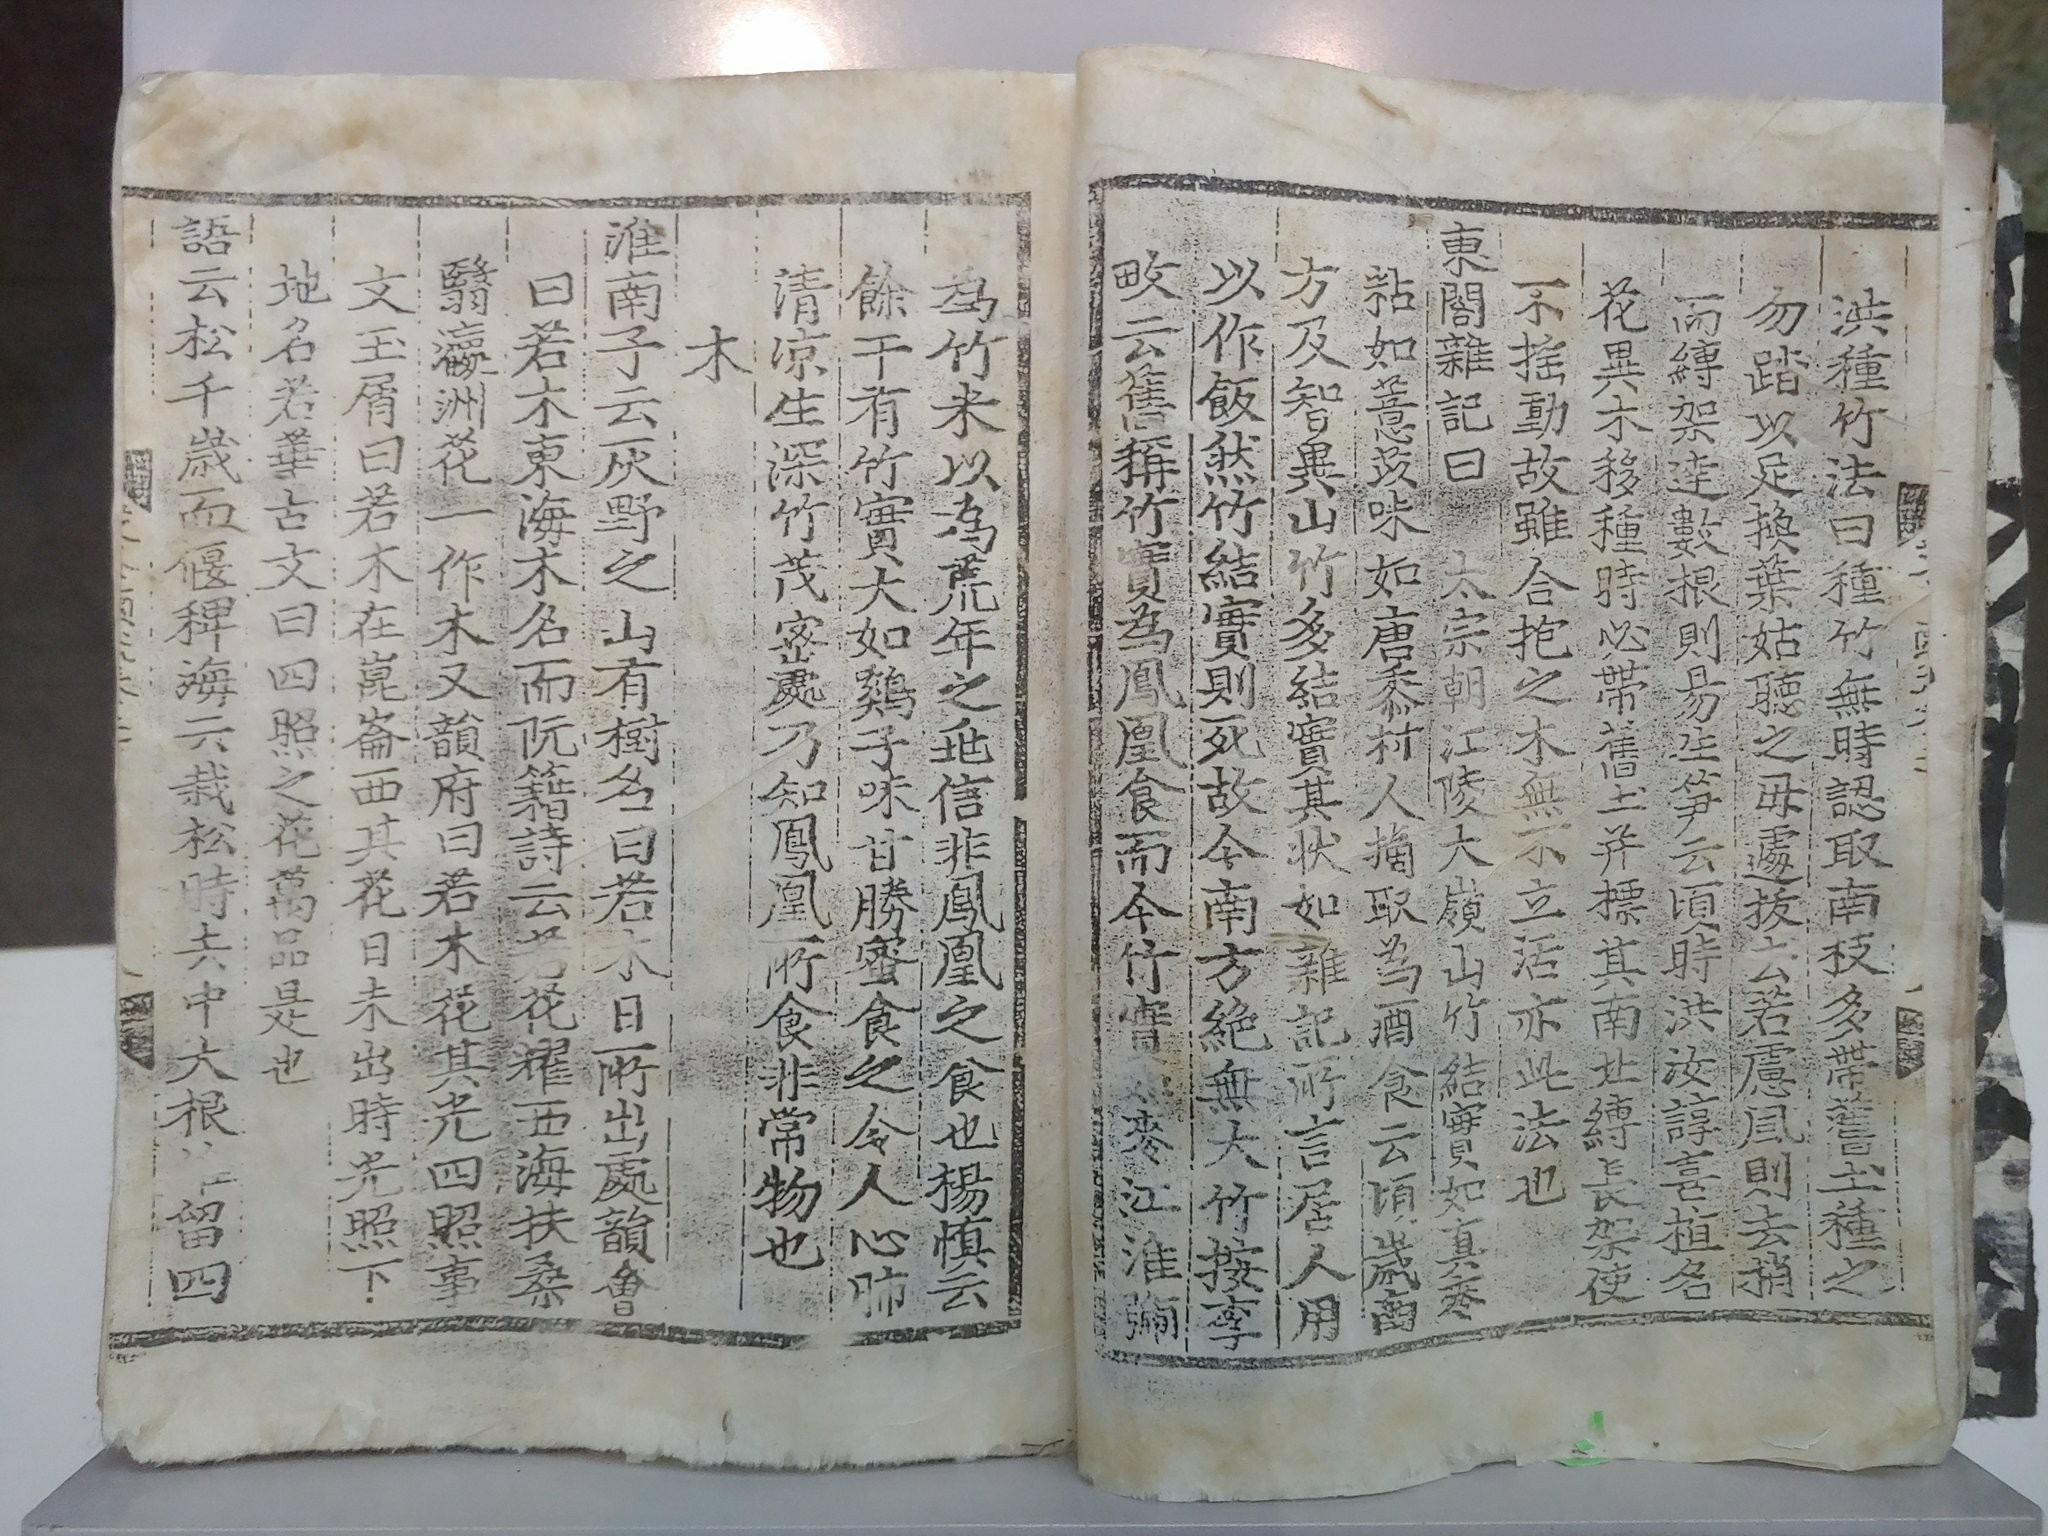 洪種竹法曰種竹無時認取南枝多帶舊土種之
勿踏以足換葉姑聽之毋遽拔去若慮風則去梢
而縛架連數根則易生笋云頃時洪汝諄喜植名
花異木移種時必帶舊土并標其南北縛長架使
不搖動故雖合抱之木無不立活亦此法也
東閣雜記曰 太宗朝江陵大嶺山竹結實如真麥
粘如薏苡味如唐黍村人摘取為酒食云頃歲南
方及智異山竹多結實其狀如雜記所言居人用
以作飯然竹結實則死故今南方絕無大竹按李
畋云舊稱竹實為鳳凰食而今竹實 麥江淮
為竹米以為荒年之兆信非鳳凰之食也楊慎云
餘干有竹實大如鷄子味甘勝蜜食之令人心肺
清凉生深竹茂密處乃知鳳凰所食非常物也
木
淮南子云灰野之山有樹名曰若木日所出處韻會
曰若木東海木名而阮籍詩云若花耀西海扶桑
翳瀛洲花一作木又韻府曰若木花其光四照事
文玉屑曰若木在崑崙西其花日未出時光照下
地名若華古文曰四照之花萬品是也
語云松千歲而偃稗海云栽松時去中大根 留四